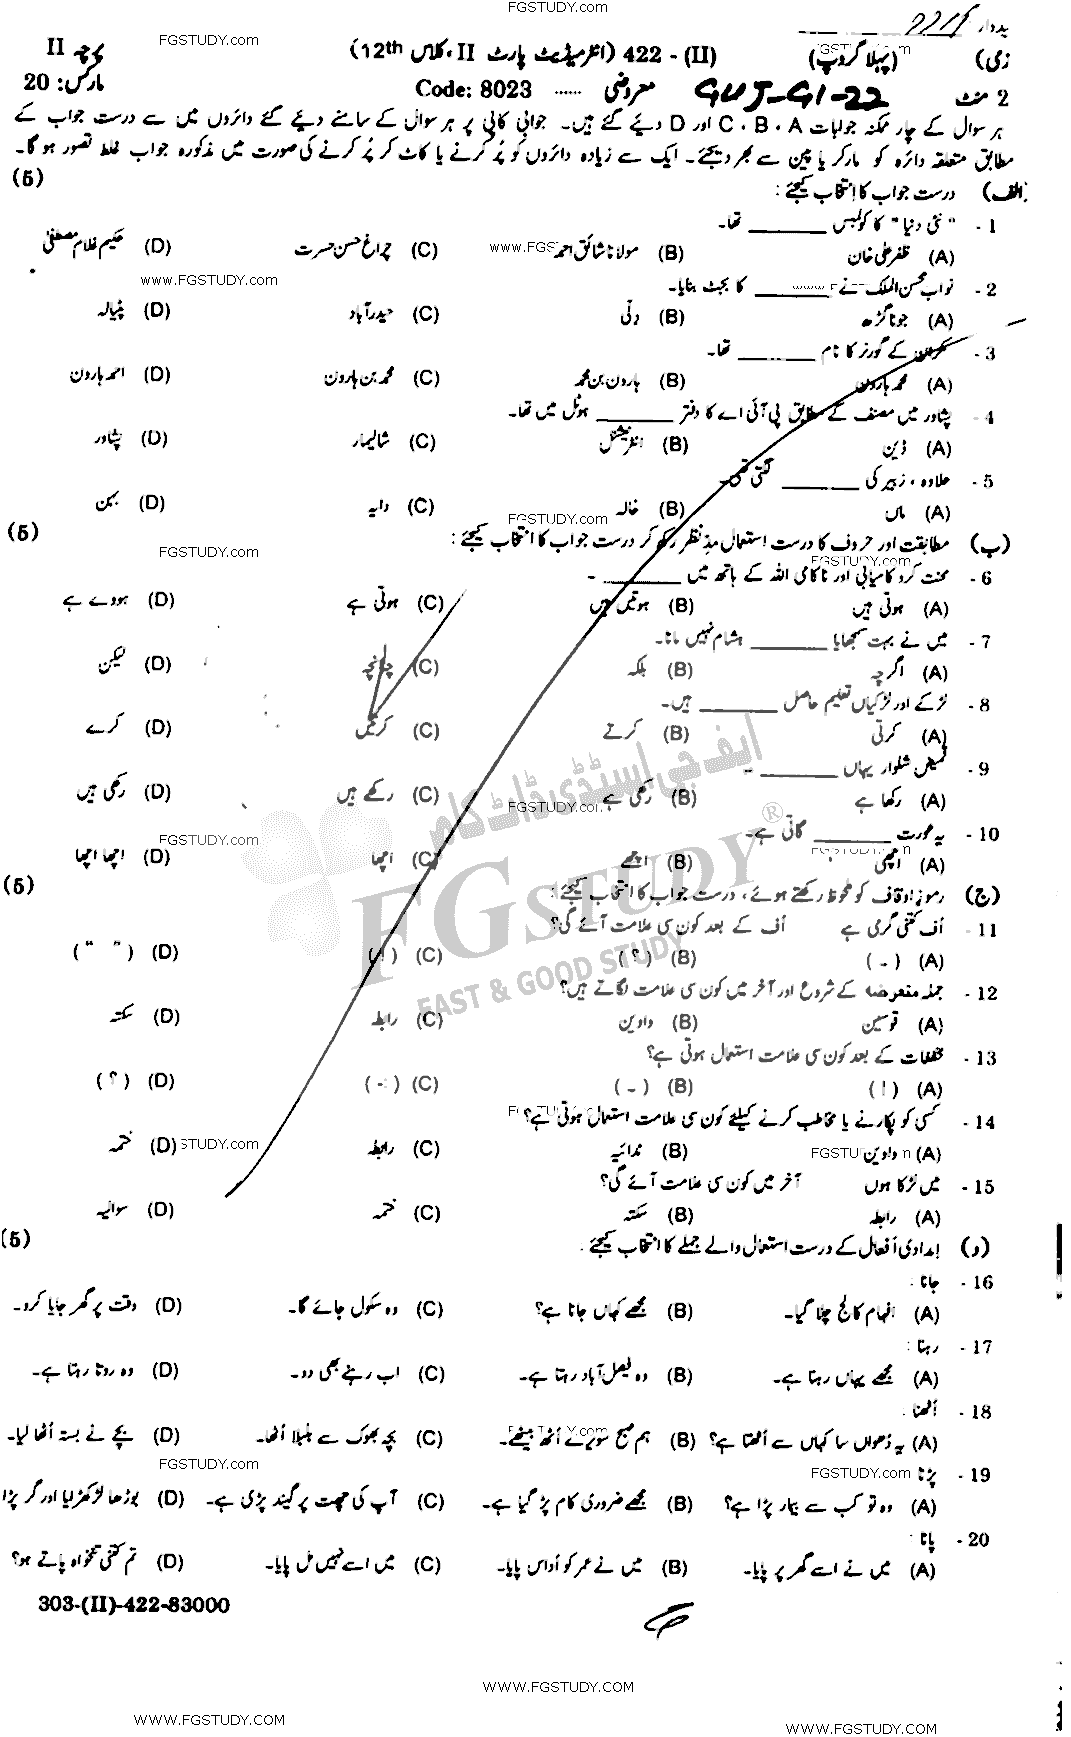 FGSTUDY.com
2216
FGSTUDY.com پرچہ II (انٹرمیڈیٹ پارٹ II، کلاس 12th) 422 - (II) (پہلا گروپ)
مارکس: 20 Code: 8023 ...... معروضی GUJ-G1-22 2 منٹ
ہر سوال کے چار ممکنہ جوابات A ، B ، C اور D دیئے گئے ہیں۔ جوابی کاپی پر ہر سوال کے سامنے دیئے گئے دائروں میں سے درست جواب کے
مطابق متعلقہ دائرہ کو مارکر یا پین سے بھر دیجئے۔ ایک سے زیادہ دائروں کو پُر کرنے یا کاٹ کر پُر کرنے کی صورت میں مذکورہ جواب غلط تصور ہو گا۔
(الف) درست جواب کا انتخاب کیجئے : (5)
1 - "نئی دنیا" کا کولمبس ________ تھا۔
(A) ظفر علی خان (B) مولانا شائق احمد (C) چراغ حسن حسرت (D) حکیم غلام مصطفیٰ
www.FGSTUDY.com
2 - نواب محسن الملک نے ________ کا بجٹ بنایا۔
(A) جوناگڑھ (B) دلی (C) حیدرآباد (D) پٹیالہ
3 - مکران کے گورنر کا نام ________ تھا۔
(A) محمد ہارون (B) ہارون بن محمد (C) محمد بن ہارون (D) احمد ہارون
4 - پشاور میں مصنف کے مطابق پی آئی اے کا دفتر ________ ہوٹل میں تھا۔
(A) ڈین (B) انٹرنیشنل (C) شالیمار (D) پشاور
5 - علاوہ ، زبیر کی ________ لگتی تھی۔
(A) ماں (B) خالہ (C) دایہ (D) بہن
FGSTUDY.com
(ب) مطابقت اور حروف کا درست استعمال مدِنظر رکھ کر درست جواب کا انتخاب کیجئے : (5)
6 - محنت کرو کامیابی اور ناکامی اللہ کے ہاتھ میں ________ -
(A) ہوتی ہیں (B) ہوتیں ہیں (C) ہوتی ہے (D) ہووے ہے
7 - میں نے بہت سمجھایا ________ ہشام نہیں مانا۔
(A) اگرچہ (B) بلکہ (C) چنانچہ (D) لیکن
8 - لڑکے اور لڑکیاں تعلیم حاصل ________ ہیں۔
(A) کرتی (B) کرتے (C) کرتیں (D) کرے
9 - قمیض شلوار یہاں ________ -
(A) رکھا ہے (B) رکھی ہے (C) رکھے ہیں (D) رکھی ہیں
FGSTUDY.com
10 - یہ عورت ________ گاتی ہے۔
(A) اچھی (B) اچھے (C) اچھا (D) اچھا اچھا
ایف جی اسٹڈی ڈاٹ کام
FGSTUDY ®
FAST & GOOD STUDY
(ج) رموزِ اوقاف کو ملحوظ رکھتے ہوئے، درست جواب کا انتخاب کیجئے : (5)
11 - اُف کتنی گرمی ہے اُف کے بعد کون سی علامت آئے گی؟
(A) (-) (B) (؟) (C) (!) (D) (" ")
12 - جملہ معترضہ کے شروع اور آخر میں کون سی علامت لگاتے ہیں؟
(A) قوسین (B) واوین (C) رابطہ (D) سکتہ
13 - مخففات کے بعد کون سی علامت استعمال ہوتی ہے؟
(A) (!) (B) (-) (C) (:-) (D) (؟)
14 - کسی کو پکارنے یا مخاطب کرنے کیلئے کون سی علامت استعمال ہوتی ہے؟
(A) واوین (B) ندائیہ (C) رابطہ (D) ختمہ
15 - میں لڑکا ہوں آخر میں کون سی علامت آئے گی؟
(A) رابطہ (B) سکتہ (C) ختمہ (D) سوالیہ
(د) امدادی افعال کے درست استعمال والے جملے کا انتخاب کیجئے : (5)
16 - جانا :
(A) افہام کالج چلا گیا۔ (B) مجھے کہاں جانا ہے؟ (C) وہ سکول جائے گا۔ (D) وقت پر گھر جایا کرو۔
17 - رہنا :
(A) مجھے یہاں رہنا ہے۔ (B) وہ فیصل آباد رہتا ہے۔ (C) اب رہنے بھی دو۔ (D) وہ روتا رہتا ہے۔
18 - اُٹھنا :
(A) یہ دُھواں سا کہاں سے اُٹھتا ہے؟ (B) ہم صبح سویرے اُٹھ بیٹھے۔ (C) بچہ بھوک سے بلبلا اُٹھا۔ (D) بچے نے بستہ اُٹھا لیا۔
FGSTUDY.com FGSTUDY.com
19 - پڑنا :
(A) وہ تو کب سے بیمار پڑا ہے؟ (B) مجھے ضروری کام پڑ گیا ہے۔ (C) آپ کی چھت پر گیند پڑی ہے۔ (D) بوڑھا لڑکھڑایا اور گر پڑا
20 - پانا :
(A) میں نے اسے گھر پر پایا۔ (B) میں نے عمر کو اُداس پایا۔ (C) میں اسے نہیں مل پایا۔ (D) تم کتنی تنخواہ پاتے ہو؟
303-(II)-422-83000
WWW.FGSTUDY.COM
WWW.FGSTUDY.COM WWW.FGSTUDY.COM